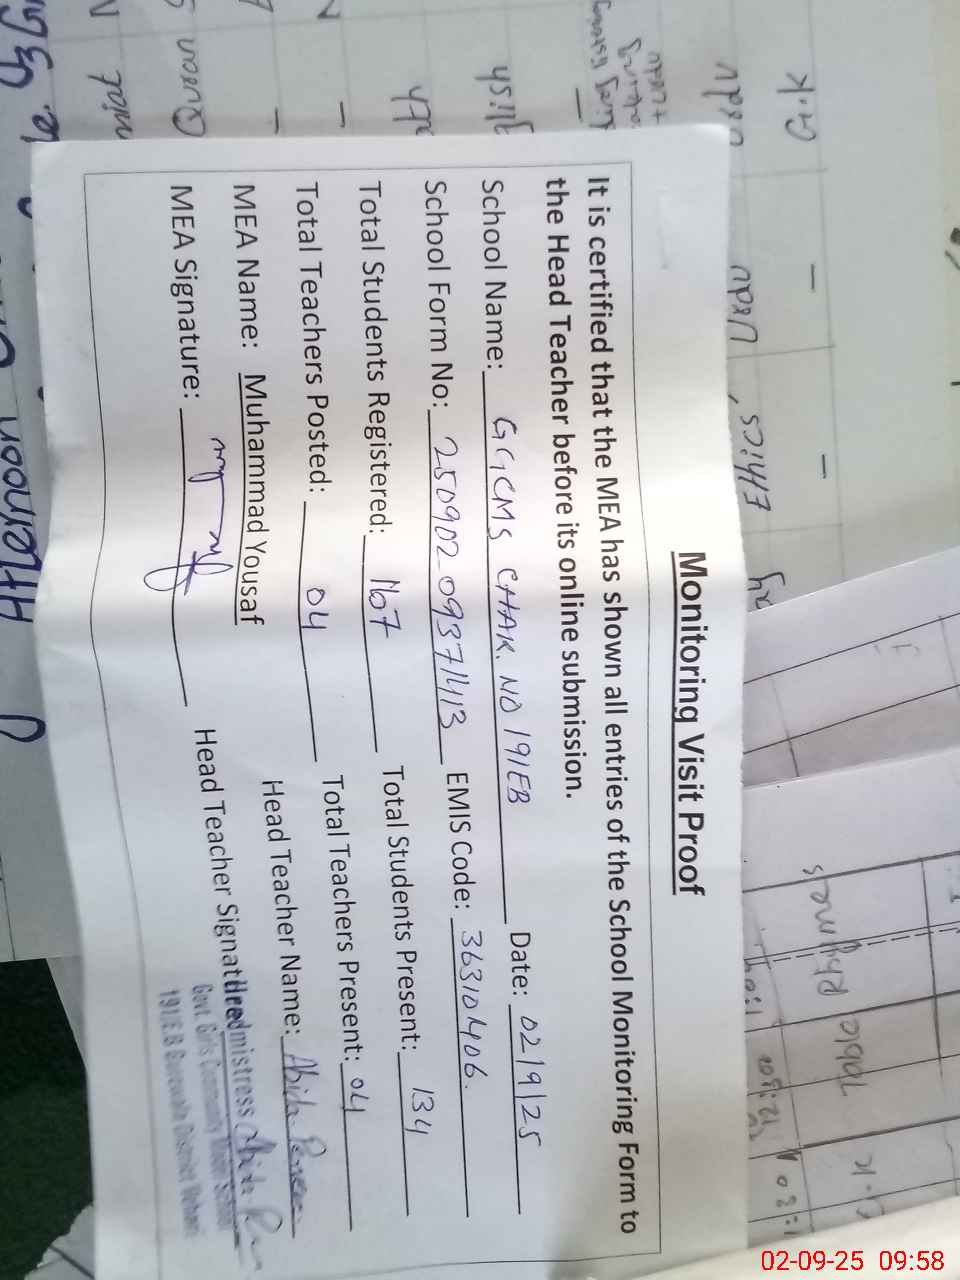 Monitoring Visit Proof
It is certified that the MEA has shown all entries of the School Monitoring Form to
the Head Teacher before its online submission.
School Name: GGCMS CHAK. NO 191EB Date: 02/9/25
School Form No: 250902_09371413 EMIS Code: 36310406.
Total Students Registered: 167 Total Students Present: 134
Total Teachers Posted: 04 Total Teachers Present: 04
MEA Name: Muhammad Yousaf Head Teacher Name: Abida
MEA Signature: Head Teacher Signat
Headmistress
Govt. Girls Community Model School
191/E.B Burewala District Vehari
G.K
Urdu
Urdu
Ethics
Rhymes
Table
G.K
02-09-25 09:58